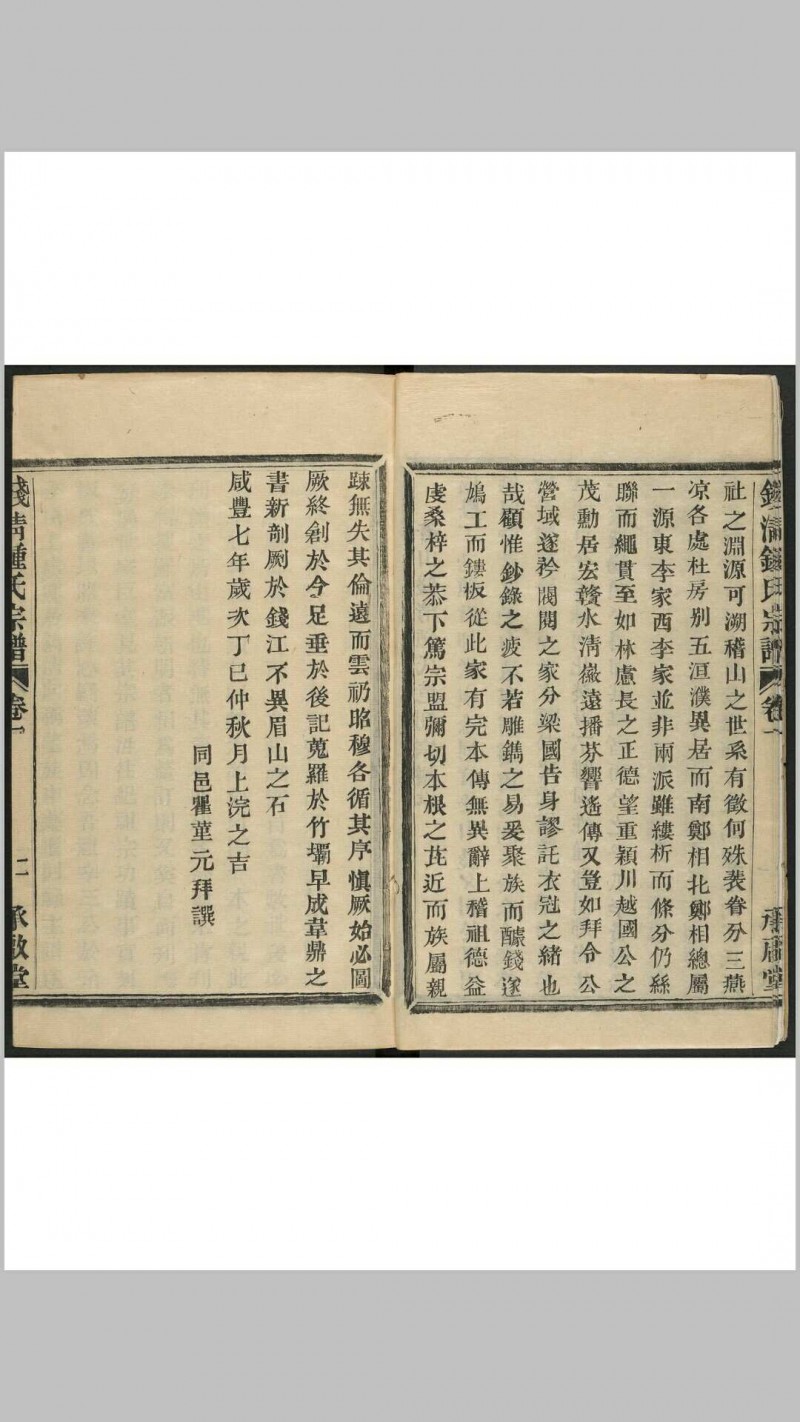 錢清鍾氏宗譜 卷一
社之淵源可溯稽山之世系有徵何殊裴眷分三燕
凉各處杜房別五洹濮異居而南鄭相北鄭相總屬
一源東李家西李家並非兩派雖縷析而條分仍絲
聯而繩貫至如林慮長之正德望重潁川越國公之
茂勳居宏贛水清徽遠播芬響遙傳又豈如拜令公
營域遂矜閥閱之家分梁國告身謬託衣冠之緒也
哉顧惟鈔錄之疲不若雕鐫之易爰聚族而醵錢遂
鳩工而鏤板從此家有完本傳無異辭上稽祖德益
虔桑梓之恭下篤宗盟彌切本根之庇近而族屬親
踈無失其倫遠而雲礽昭穆各循其序愼厥始必圖
厥終創於今足垂於後記蒐羅於竹壩早成韋鼎之
書新剞劂於錢江不異眉山之石
咸豐七年歲次丁巳仲秋月上浣之吉
同邑瞿堇元拜譔
錢清鍾氏宗譜 卷一 二 承啟堂